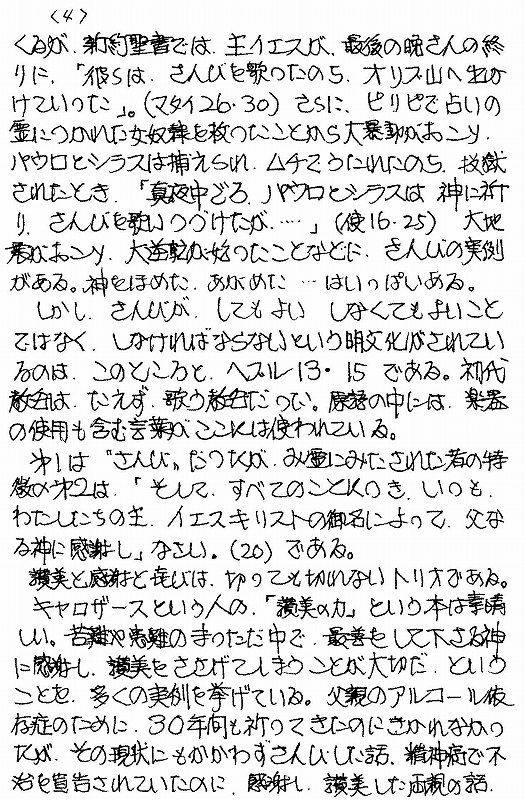 <4>
くるが、新約聖書では、主イエスが、最後の晩さんの終
りに、「彼らは、さんびを歌ったのち、オリブ山へ出か
けていった」。(マタイ26・30) さらに、ピリピで占いの
霊につかれた女奴隷を救ったことから大暴動がおこり、
パウロとシラスは捕えられ、ムチでうたれたのち、投獄
されたとき、「真夜中ごろ、パウロとシラスは、神に祈
り、さんびを歌いつづけたが、……」(使16・25) 大地
震がおこり、大逆転が始ったことなどに、さんびの実例
がある。神をほめた、あがめた…はいっぱいある。
しかし、さんびが、してもよい しなくてもよいこと
ではなく、しなければならないという明文化がされてい
るのは、このところと、ヘブル13・15である。初代
教会は、たえず、歌う教会だった。原語の中には、楽器
の使用も含む言葉がここには使われている。
第1は“さんび”だったが、み霊にみたされた者の特
徴の第2は、「そして、すべてのことにつき、いつも、
わたしたちの主、イエスキリストの御名によって、父な
る神に感謝し」なさい。(20) である。
讃美と感謝と喜びは、切っても切れないトリオである。
キャロザースという人の、「讃美の力」という本は素晴
しい。苦難や患難のまっただ中で、最善をして下さる神
に感謝し、讃美をささげてしまうことが大切だ、という
ことを、多くの実例を挙げている。父親のアルコール依
存症のために、30年間も祈ってきたのにきかれなかっ
たが、その現状にもかかわずさんびした話、精神病で不
治を宣告されていたのに、感謝し、讃美した両親の話、